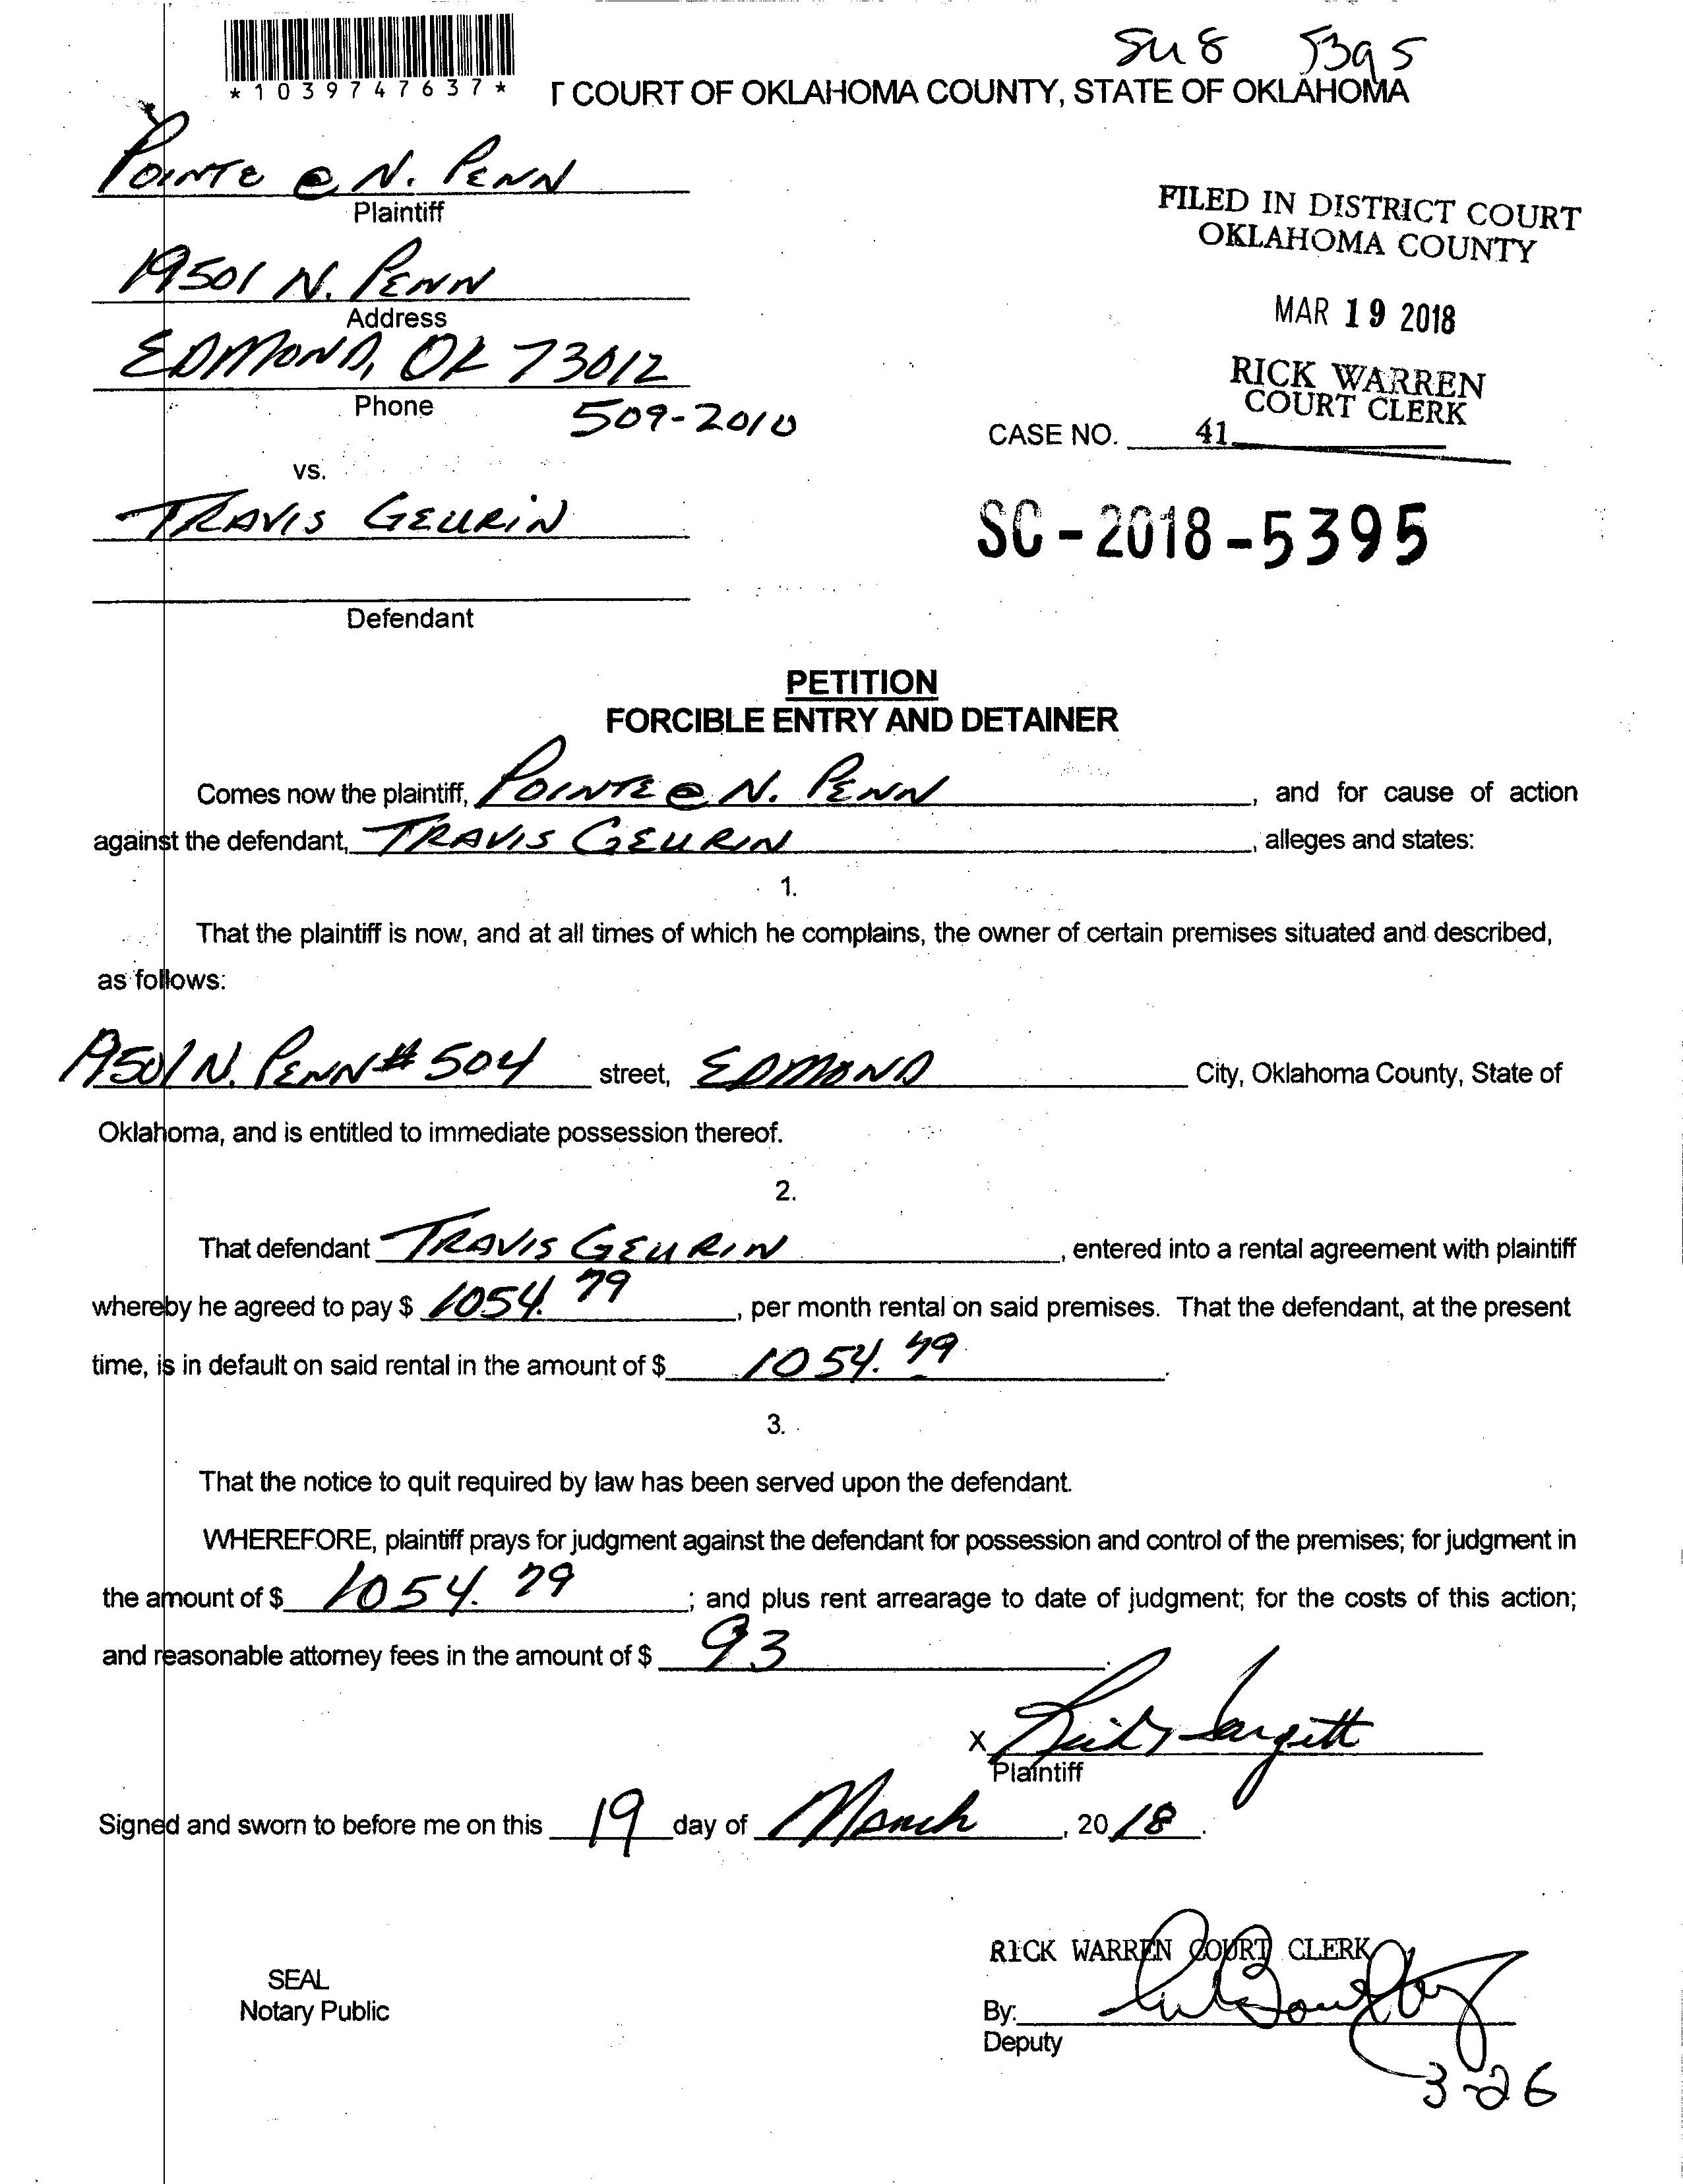 SU 8 5395
*1039747637*
T COURT OF OKLAHOMA COUNTY, STATE OF OKLAHOMA
POINTE @ N. PENN
Plaintiff
FILED IN DISTRICT COURT
OKLAHOMA COUNTY
19501 N. PENN
Address
MAR 19 2018
EDMOND, OK 73012
RICK WARREN
COURT CLERK
Phone 509-2010
CASE NO. 41
vs.
TRAVIS GEURIN
SC-2018-5395
Defendant
PETITION
FORCIBLE ENTRY AND DETAINER
Comes now the plaintiff, POINTE @ N. PENN, and for cause of action
against the defendant, TRAVIS GEURIN, alleges and states:
1.
That the plaintiff is now, and at all times of which he complains, the owner of certain premises situated and described,
as follows:
19501 N. PENN # 504 street, EDMOND City, Oklahoma County, State of
Oklahoma, and is entitled to immediate possession thereof.
2.
That defendant TRAVIS GEURIN, entered into a rental agreement with plaintiff
whereby he agreed to pay $ 1054.79, per month rental on said premises. That the defendant, at the present
time, is in default on said rental in the amount of $ 1054.79.
3.
That the notice to quit required by law has been served upon the defendant.
WHEREFORE, plaintiff prays for judgment against the defendant for possession and control of the premises; for judgment in
the amount of $ 1054.79; and plus rent arrearage to date of judgment; for the costs of this action;
and reasonable attorney fees in the amount of $ 93.
X Sargett
Plaintiff
Signed and sworn to before me on this 19 day of March, 2018.
RICK WARREN COURT CLERK
SEAL
Notary Public
By:
Deputy
3-26